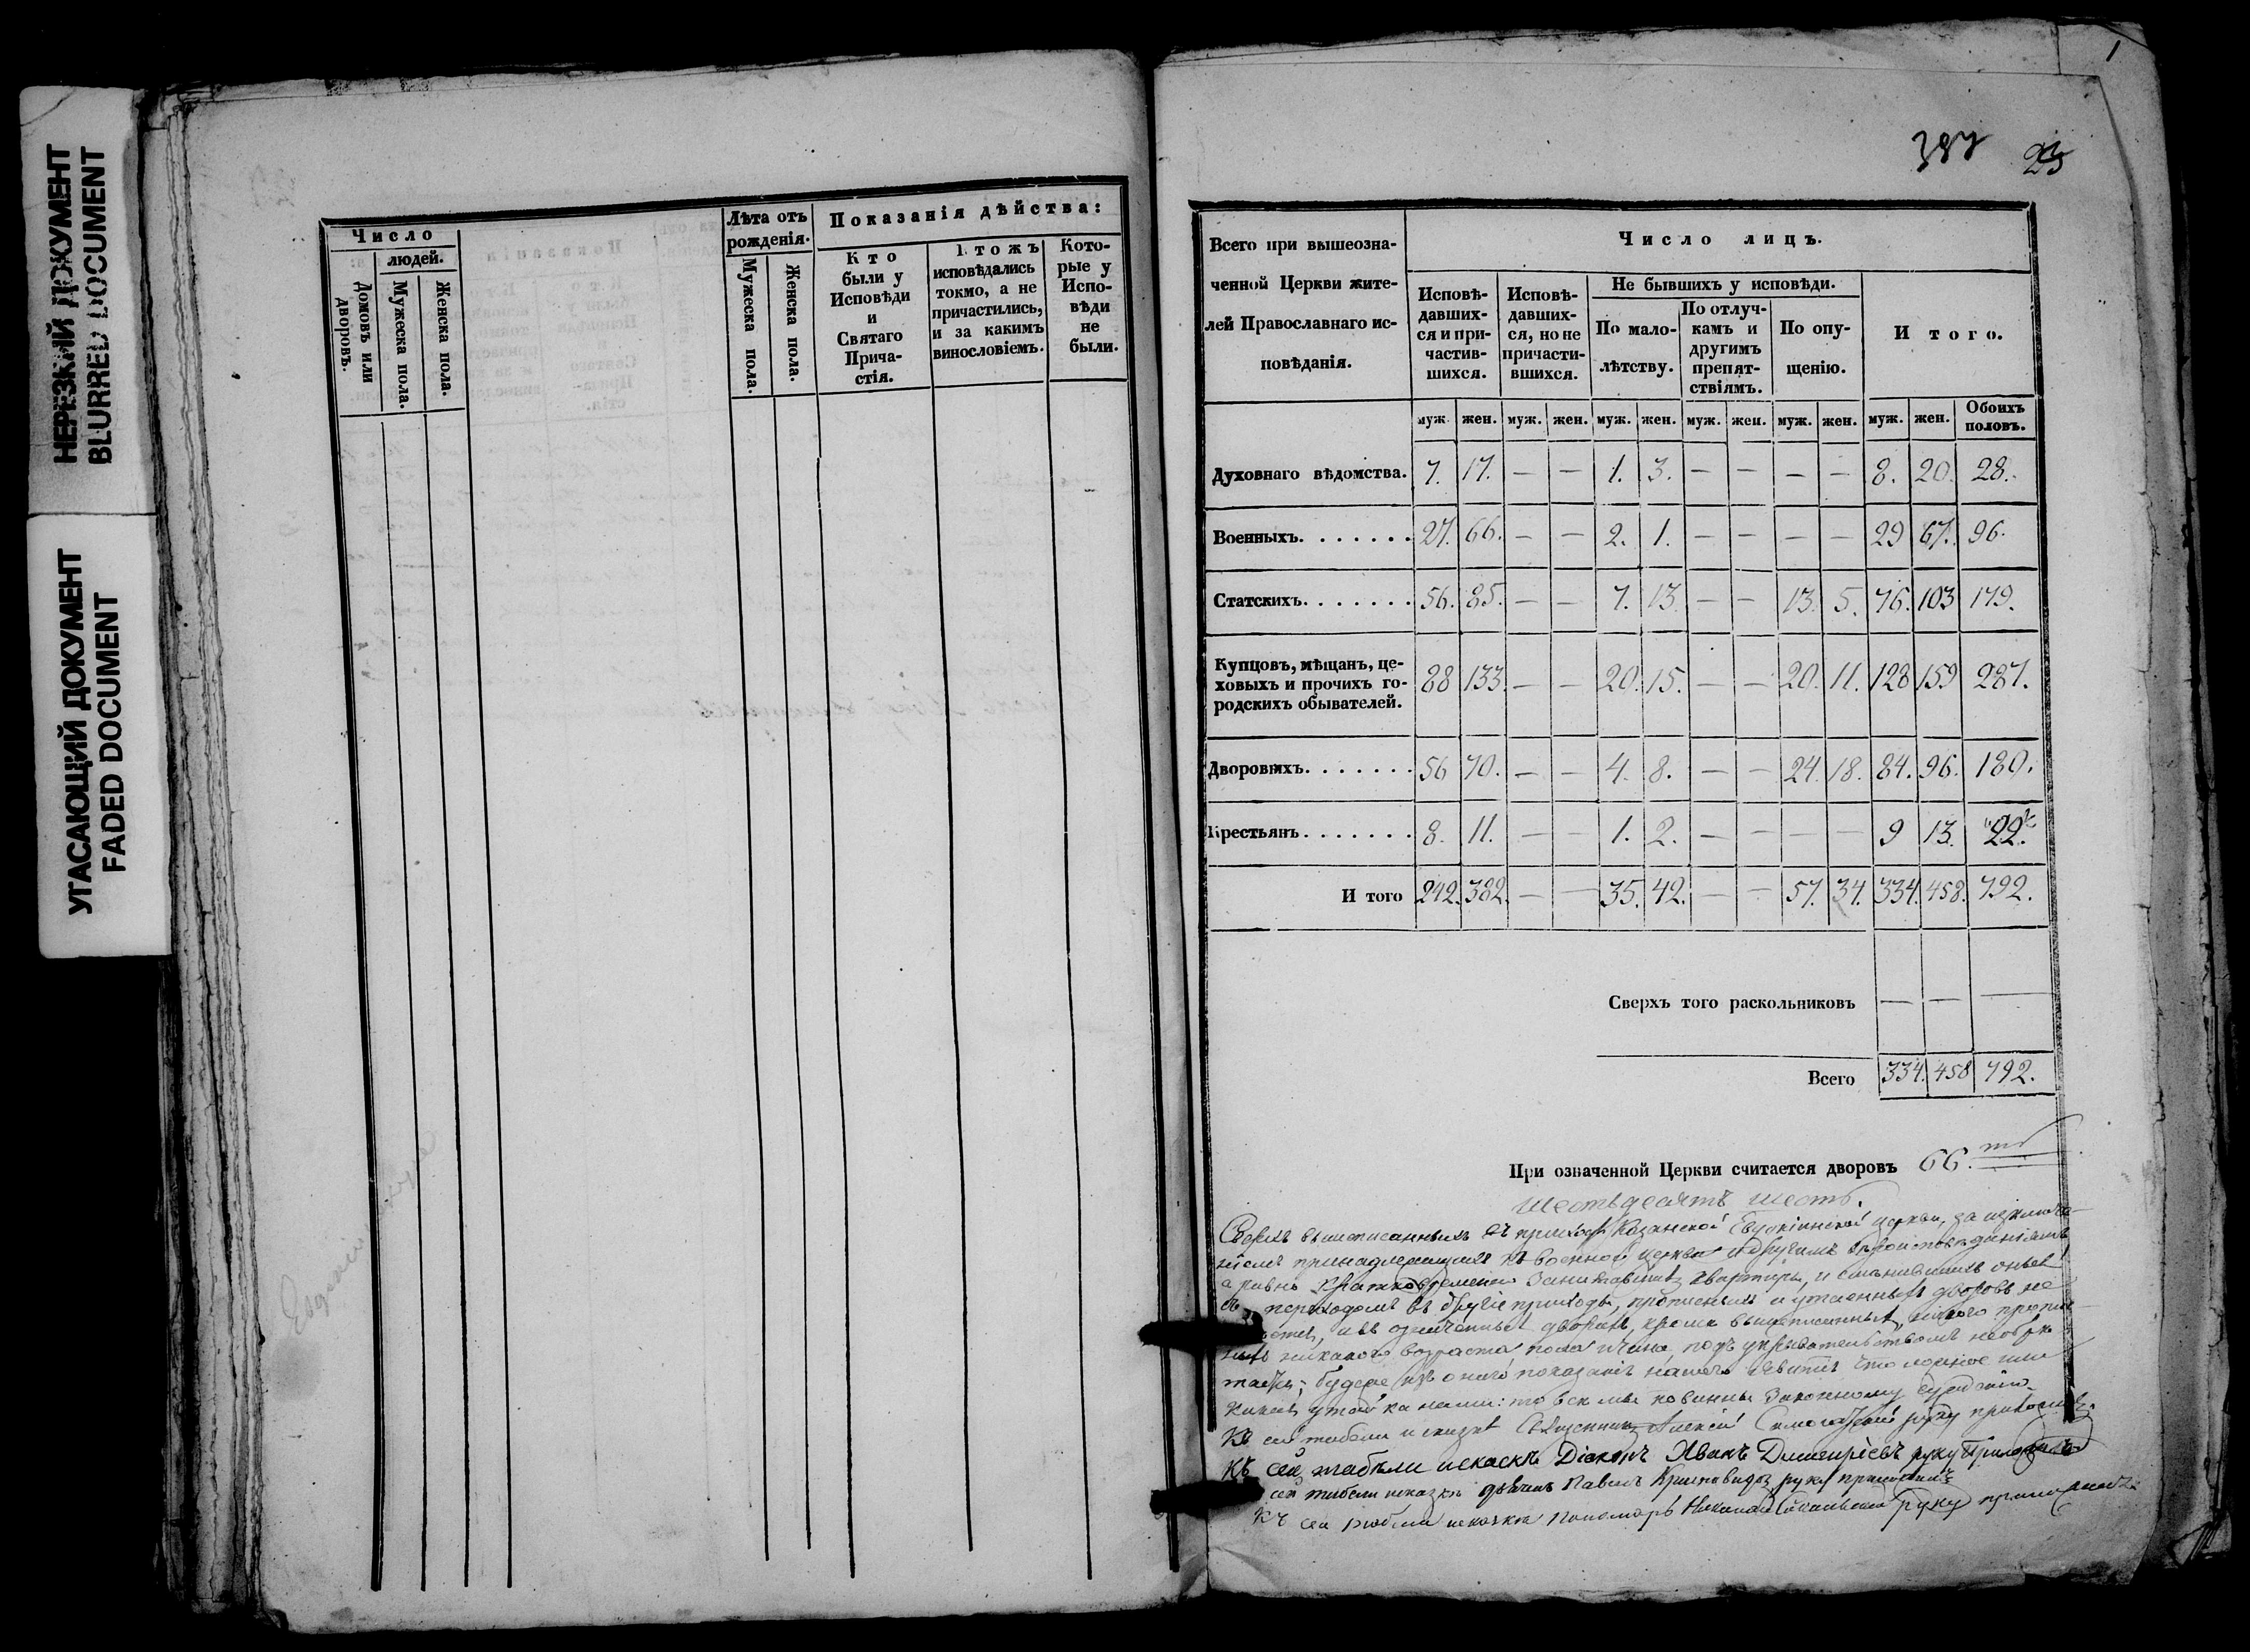 НЕРЕЗКИЙ ДОКУМЕНТ
BLURRED DOCUMENT
УГАСАЮЩИЙ ДОКУМЕНТ
FADED DOCUMENT
Число
людей.
Домовъ или дворовъ.
Мужеска пола.
Женска пола.
Лѣта отъ рожденія.
Мужеска пола.
Женска пола.
Показанія дѣйства:
Кто
были у
Исповѣди
и
Святаго
Прича-
стія.
тожъ
исповѣдались
токмо, а не
причастились,
и за какимъ
винословіемъ.
Кото-
рые у
Испо-
вѣди
не
были.
1
387 23
Всего при вышеозна-
ченной Церкви жите-
лей Православнаго ис-
повѣданія.
Число лицъ.
Исповѣ-
давших-
ся и при-
частив-
шихся.
Исповѣ-
давших-
ся, но не
причасти-
вшихся.
Не бывшихъ у исповѣди.
По мало-
лѣтству.
По отлуч-
камъ и
другимъ
препят-
ствіямъ.
По опу-
щенію.
Итого.
муж. жен. муж. жен. муж. жен. муж. жен. муж. жен. муж. жен. Обоихъ половъ.
Духовнаго вѣдомства. 7. 17. — — 1. 3. — — — — 8. 20. 28.
Военныхъ. . . . . . . 27. 66. — — 2. 1. — — — — 29 67. 96.
Статскихъ. . . . . . . 56. 85. — — 7. 13. — — 13. 5. 76. 103 179.
Купцовъ, мѣщанъ, це-
ховыхъ и прочихъ го-
родскихъ обывателей. 88 133. — — 20. 15. — — 20. 11. 128 159 287.
Дворовыхъ. . . . . . . 56 70. — — 4. 8. — — 24. 18. 84. 96. 180.
Крестьянъ. . . . . . . 8. 11. — — 1. 2. — — — — 9 13. 22.
Итого 242. 382. — — 35. 42. — — 57. 34. 334. 458. 792.
Сверхъ того раскольниковъ — — —
Всего 334. 458 792.
При означенной Церкви считается дворовъ 66.ть
шестьдесятъ шесть.
Сверхъ вышеписанныхъ въ приходѣ Казанской церкви, за исключе-
ніемъ принадлежащихъ къ военной церкви и другимъ
а равно кратковременно занимавшихъ квартиры, и
переходомъ въ другіе приходы, прописныхъ и утаенныхъ дворовъ не
означенныхъ дворахъ, кромѣ вышеписанныхъ, никого
никакого возраста пола и чина, подъ укрывательствомъ
буде изъ онаго показанія нашего явится что ложное или
утайка нами: то всѣ мы повинны законному сужденію.
Къ сей табели и сказкѣ Священникъ Алексій руку приложилъ.
Къ сей табѣли искаскѣ Діаконъ Иванъ Димитріевъ руку приложилъ
сей табели исказкѣ дьячекъ Павелъ руку приложилъ
Къ сей искаскѣ Пономарь Николай руку приложилъ